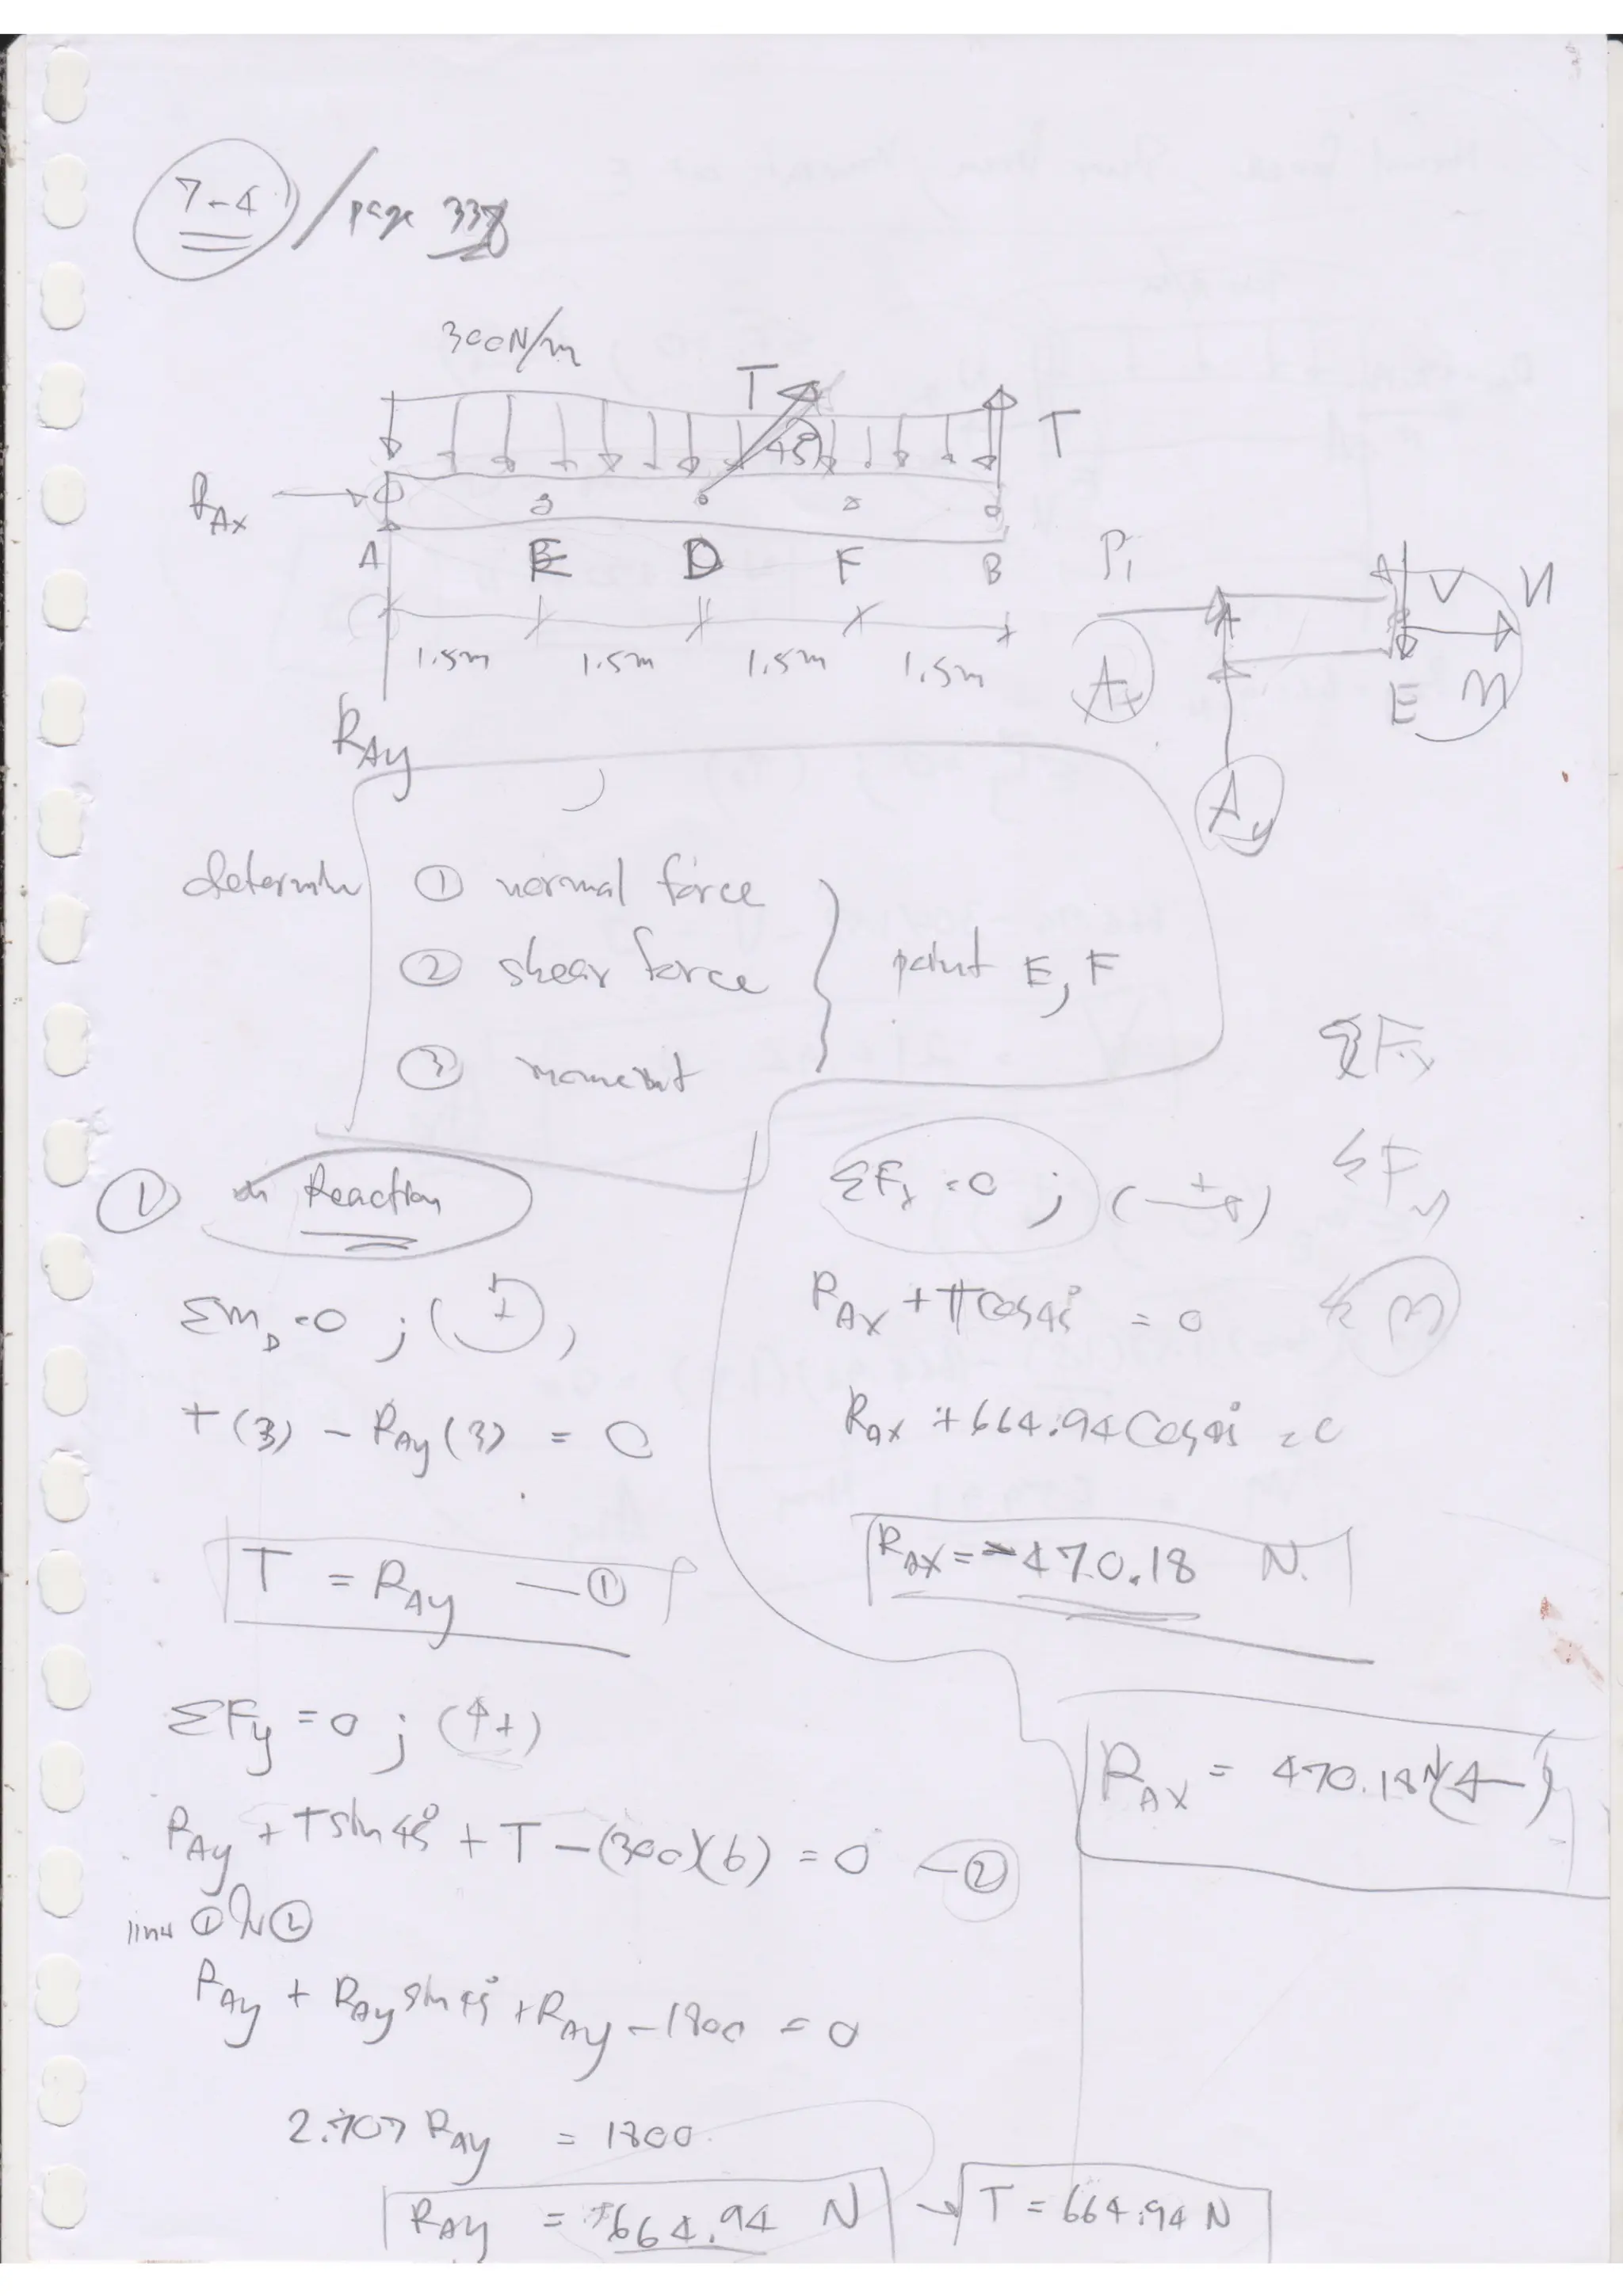 7-4 / page 338
300N/m
T
45°
T
R_Ax
A E D F B
1.5m 1.5m 1.5m 1.5m
R_Ay
P₁
V N
A_x
E M
A_y
determine
① normal force
② shear force
③ moment
point E, F
① หา Reaction
ΣM_D = 0 ; (+),
T(3) - R_Ay(3) = 0
T = R_Ay —①
ΣFy = 0 ; (↑+)
R_Ay + T sin45° + T - (300)(6) = 0 —②
แทน ① ใน ②
R_Ay + R_Ay sin45° + R_Ay - 1800 = 0
2.707 R_Ay = 1800
R_Ay = 664.94 N → T = 664.94 N
ΣFx = 0 ; (+→)
R_Ax + T cos45° = 0
R_Ax + 664.94 cos45° = 0
R_Ax = -470.18 N.
R_Ax = 470.18 N (←)
ΣFx
ΣFy
ΣM